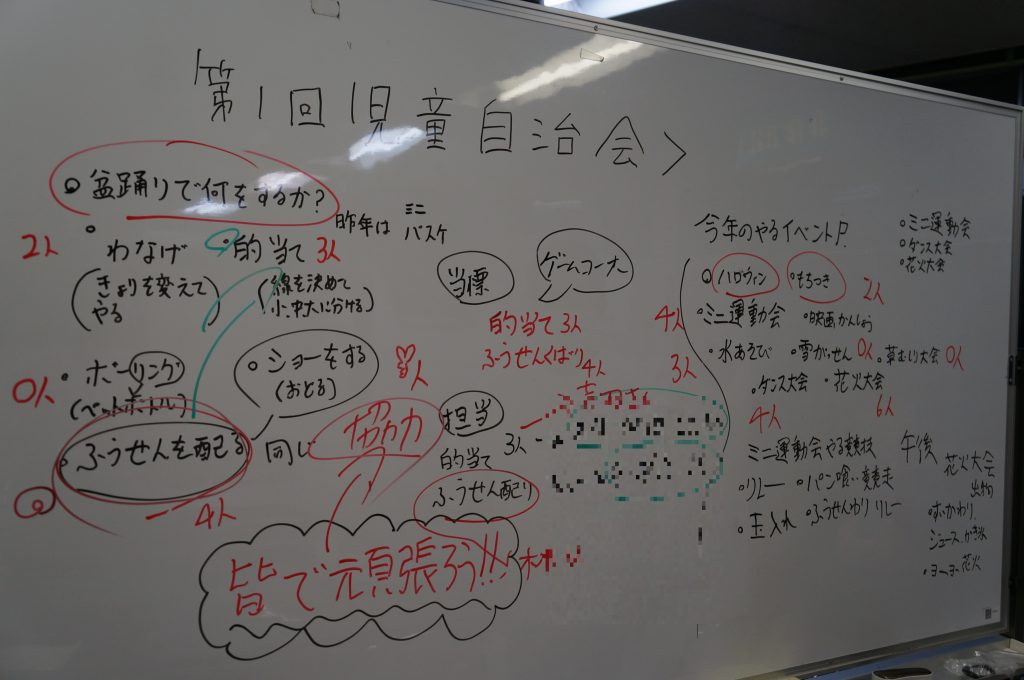 第1回児童自治会
盆踊りで何をするか?
昨年は ミニバスケ
2人
わなげ
(きょりを変えてやる)
的当て 3人
(線を決めて小、中、大に分ける)
0人
ボーリング
(ペットボトル)
ショーをする
(おどる)
人
ふうせんを配る
4人
同じ
協力
皆で頑張ろう!!
ゲームコーナー
的当て 3人
ふうせんくばり
4人
担当
的当て
3人
ふうせん配り
今年のやるイベント
ハロウィン
もちつき 2人
4人 ミニ運動会
映画かんしょう
3人 水あそび
雪がっせん 0人
草むしり大会 0人
ダンス大会
4人
花火大会
6人
ミニ運動会
ダンス大会
花火大会
ミニ運動会やる競技
リレー
パン喰い競走
玉入れ
ふうせんわりリレー
午後
花火大会
出物
すいかわり
ジュース、かき氷
ヨーヨー 花火